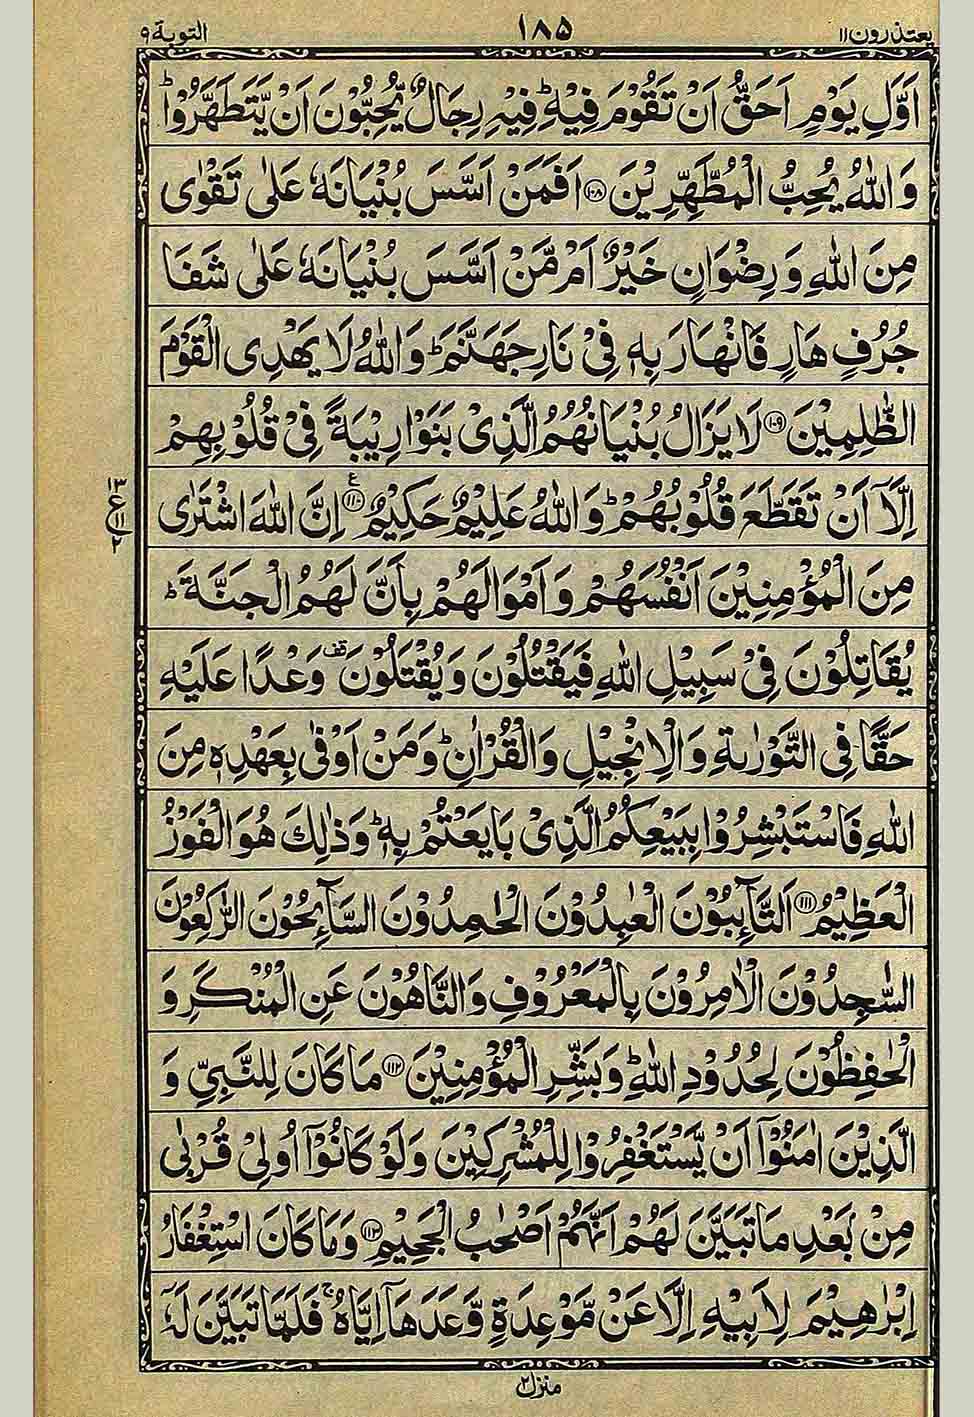 یعتذرون ۱۱ ۱۸۵ التوبة ۹
اَوَّلِ يَوْمٍ اَحَقُّ اَنْ تَقُوْمَ فِيْهِ ؕ فِيْهِ رِجَالٌ يُّحِبُّوْنَ اَنْ يَّتَطَهَّرُوْا ؕ
وَاللّٰهُ يُحِبُّ الْمُطَّهِّرِيْنَ ﴿۱۰۸﴾ اَفَمَنْ اَسَّسَ بُنْيَانَهٗ عَلٰى تَقْوٰى
مِنَ اللّٰهِ وَرِضْوَانٍ خَيْرٌ اَمْ مَّنْ اَسَّسَ بُنْيَانَهٗ عَلٰى شَفَا
جُرُفٍ هَارٍ فَانْهَارَ بِهٖ فِيْ نَارِ جَهَنَّمَ ؕ وَاللّٰهُ لَا يَهْدِى الْقَوْمَ
الظّٰلِمِيْنَ ﴿۱۰۹﴾ لَا يَزَالُ بُنْيَانُهُمُ الَّذِىْ بَنَوْا رِيْبَةً فِيْ قُلُوْبِهِمْ
اِلَّاۤ اَنْ تَقَطَّعَ قُلُوْبُهُمْ ؕ وَاللّٰهُ عَلِيْمٌ حَكِيْمٌ ﴿۱۱۰﴾ ع اِنَّ اللّٰهَ اشْتَرٰى
۱۳ ع ۱۱ ۲
مِنَ الْمُؤْمِنِيْنَ اَنْفُسَهُمْ وَاَمْوَالَهُمْ بِاَنَّ لَهُمُ الْجَنَّةَ ؕ
يُقَاتِلُوْنَ فِيْ سَبِيْلِ اللّٰهِ فَيَقْتُلُوْنَ وَيُقْتَلُوْنَ قف وَعْدًا عَلَيْهِ
حَقًّا فِى التَّوْرٰىةِ وَالْاِنْجِيْلِ وَالْقُرْاٰنِ ؕ وَمَنْ اَوْفٰى بِعَهْدِهٖ مِنَ
اللّٰهِ فَاسْتَبْشِرُوْا بِبَيْعِكُمُ الَّذِىْ بَايَعْتُمْ بِهٖ ؕ وَذٰلِكَ هُوَ الْفَوْزُ
الْعَظِيْمُ ﴿۱۱۱﴾ اَلتَّآئِبُوْنَ الْعٰبِدُوْنَ الْحٰمِدُوْنَ السَّآئِحُوْنَ الرّٰكِعُوْنَ
السّٰجِدُوْنَ الْاٰمِرُوْنَ بِالْمَعْرُوْفِ وَالنَّاهُوْنَ عَنِ الْمُنْكَرِ وَ
الْحٰفِظُوْنَ لِحُدُوْدِ اللّٰهِ ؕ وَبَشِّرِ الْمُؤْمِنِيْنَ ﴿۱۱۲﴾ مَا كَانَ لِلنَّبِيِّ وَ
الَّذِيْنَ اٰمَنُوْۤا اَنْ يَّسْتَغْفِرُوْا لِلْمُشْرِكِيْنَ وَلَوْ كَانُوْۤا اُولِيْ قُرْبٰى
مِنْۢ بَعْدِ مَا تَبَيَّنَ لَهُمْ اَنَّهُمْ اَصْحٰبُ الْجَحِيْمِ ﴿۱۱۳﴾ وَمَا كَانَ اسْتِغْفَارُ
اِبْرٰهِيْمَ لِاَبِيْهِ اِلَّا عَنْ مَّوْعِدَةٍ وَّعَدَهَاۤ اِيَّاهُ ۚ فَلَمَّا تَبَيَّنَ لَهٗۤ
منزل ۲